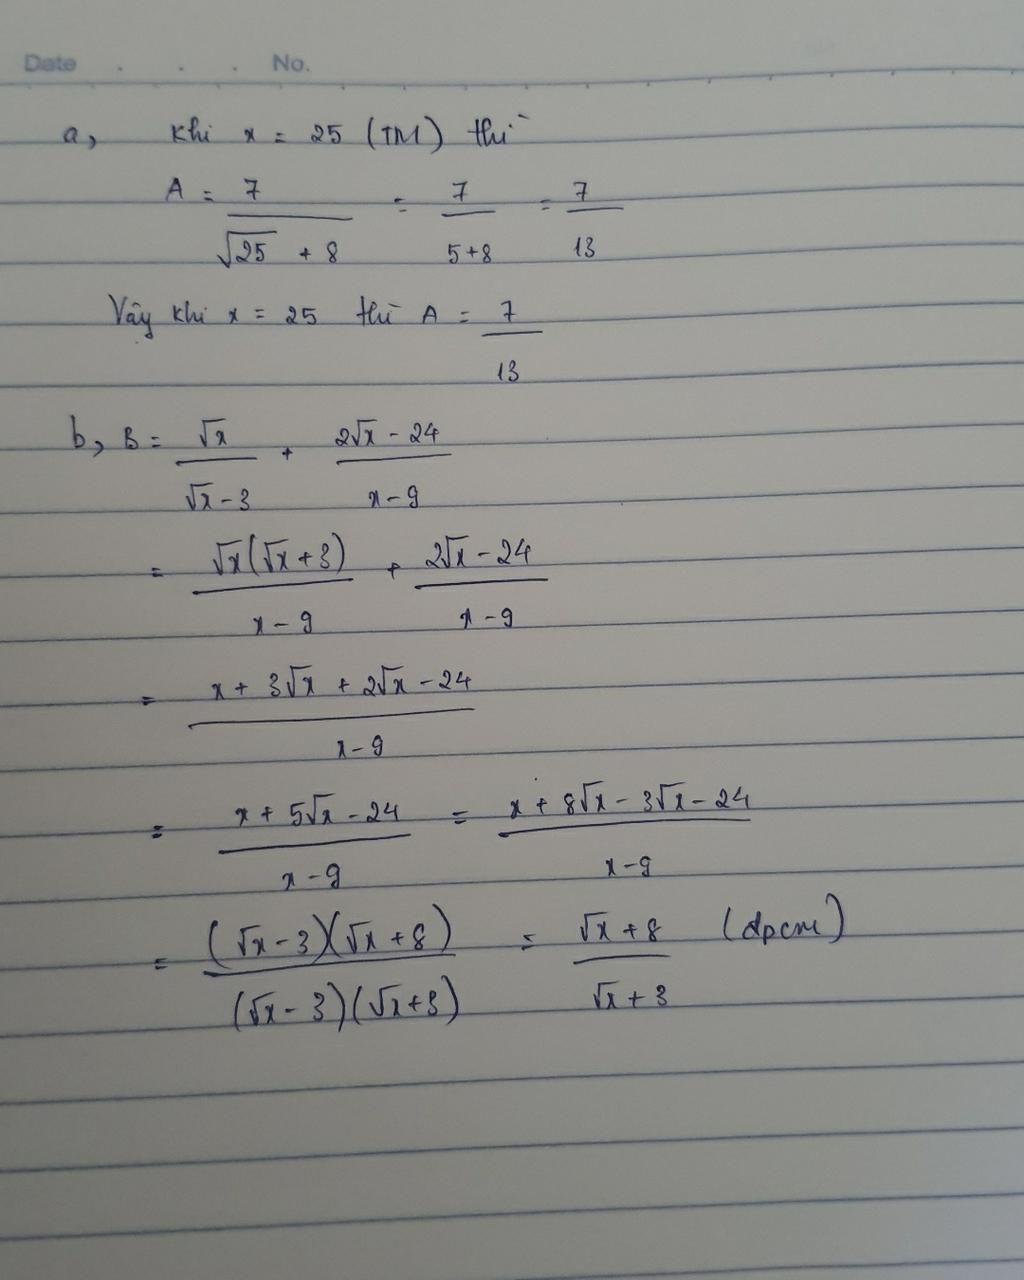 Date . . . No.
a, Khi x = 25 (TM) thì
A = 7/(√25 + 8) = 7/(5+8) = 7/13
Vậy khi x = 25 thì A = 7/13
b, B = √x/(√x - 3) + (2√x - 24)/(x - 9)
= √x(√x + 3)/(x - 9) + (2√x - 24)/(x - 9)
= (x + 3√x + 2√x - 24)/(x - 9)
= (x + 5√x - 24)/(x - 9) = (x + 8√x - 3√x - 24)/(x - 9)
= (√x - 3)(√x + 8)/(√x - 3)(√x + 3) = (√x + 8)/(√x + 3) (dpcm)